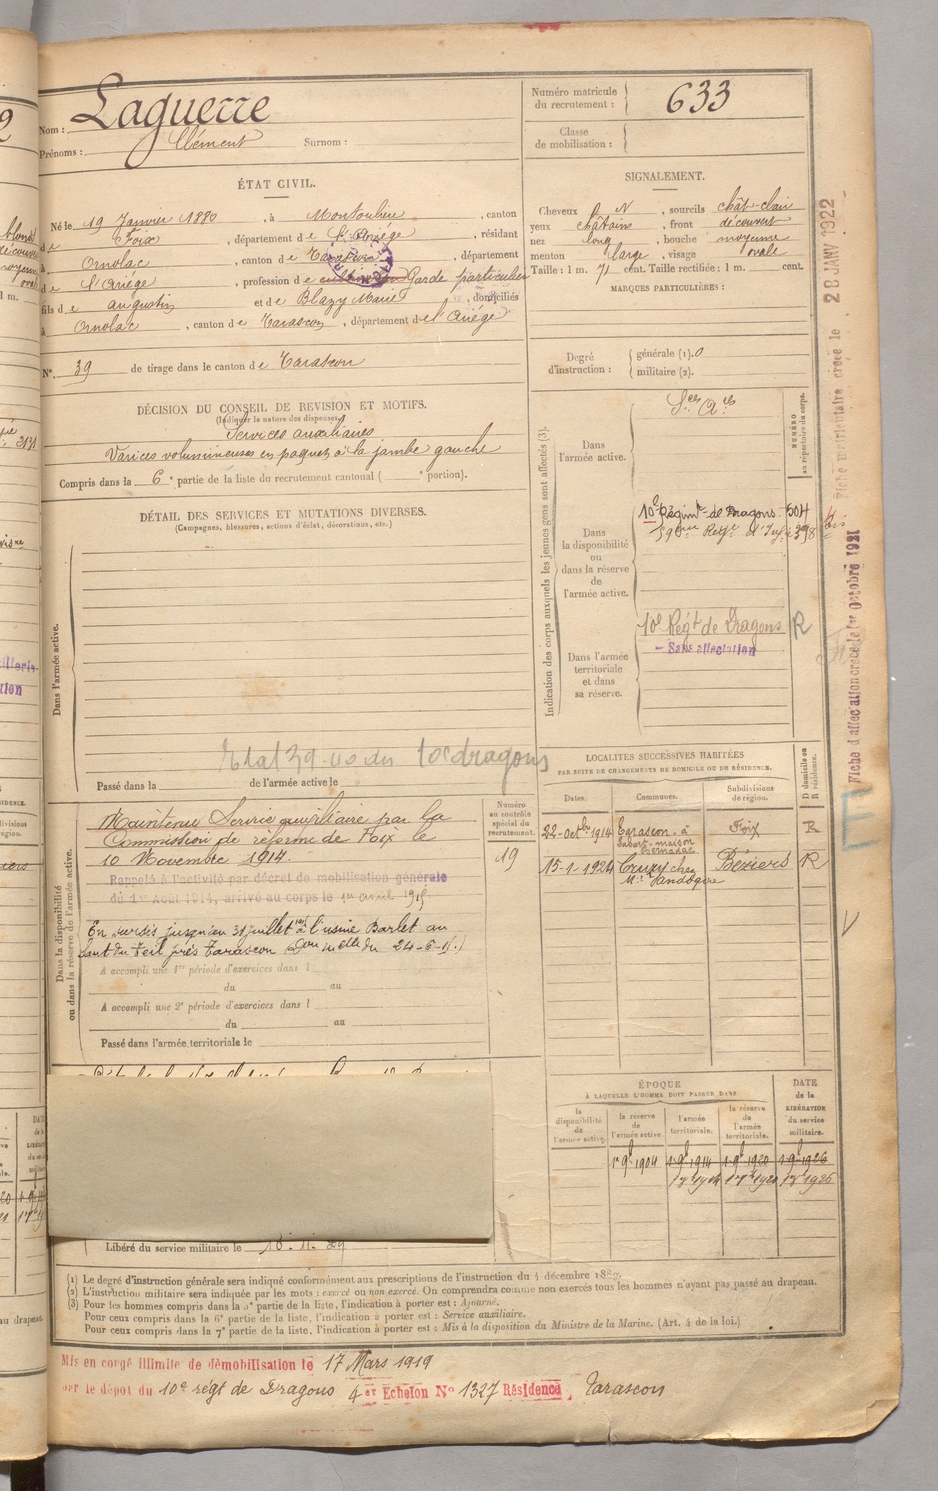 Nom : Laguerre
Prénoms : Clément Surnom :
Numéro matricule du recrutement : 633
Classe de mobilisation :
ÉTAT CIVIL.
Né le 19 Janvier 1880, à Montoulieu, canton
de Foix, département de l'Ariége, résidant
à Ornolac, canton de Tarascon, département
de l'Ariége, profession de Garde particulier
fils de augustin et de Blazy Marie, domiciliés
à Ornolac, canton de Tarascon, département de l'Ariége
N° 39 de tirage dans le canton de Tarascon
SIGNALEMENT.
Cheveux N, sourcils chât-clair
yeux châtains, front découvert
nez long, bouche moyenne
menton large, visage ovale
Taille : 1 m. 71 cent. Taille rectifiée : 1 m. cent.
MARQUES PARTICULIÈRES :
Degré d'instruction : générale (1). 0
militaire (2).
DÉCISION DU CONSEIL DE REVISION ET MOTIFS.
(Indiquer la nature des dispenses.)
Services auxiliaires
Varices volumineuses en paquets à la jambe gauche
Compris dans la 6e partie de la liste du recrutement cantonal ( e portion).
DÉTAIL DES SERVICES ET MUTATIONS DIVERSES.
(Campagnes, blessures, actions d'éclat, décorations, etc.)
Dans l'armée active.
Etat 39 du 10e dragons
Passé dans la de l'armée active le
Indication des corps auxquels les jeunes gens sont affectés (3).
NUMÉRO au répertoire du corps.
Dans l'armée active.
Ses Ares
Dans la disponibilité ou dans la réserve de l'armée active.
10e Régimt de Dragons 504
59eme Regt d'Infie 398
Dans l'armée territoriale et dans sa réserve.
10e Régt de Dragons R
- Sans affectation
Fiche matriculaire créée le 28 JANV 1922
Fiche d'affectation créée le 1er Octobre 1921
Dans la disponibilité ou dans la réserve de l'armée active.
Numéro au contrôle spécial du recrutement.
19
Maintenu Service auxiliaire par la
Commission de réforme de Foix le
10 Novembre 1914.
Rappelé à l'activité par décret de mobilisation générale
du 1er Août 1914, arrivé au corps le 1er avril 1915
En sursis jusqu'au 31 juillet 1915 à l'usine Barlet au
Saut du Teil près Tarascon
A accompli une 1re période d'exercices dans l
du au
A accompli une 2e période d'exercices dans l
du au
Passé dans l'armée territoriale le
LOCALITÉS SUCCESSIVES HABITÉES
PAR SUITE DE CHANGEMENTS DE DOMICILE OU DE RÉSIDENCE.
Dates. Communes. Subdivisions de région. D domicile ou R résidence.
22-octbre 1914 Tarascon-à Sabart-maison Bernadac Foix R
15-1-1924 Cruzy chez Béziers R
ÉPOQUE
À LAQUELLE L'HOMME DOIT PASSER DANS
la disponibilité de l'armée active.
la réserve de l'armée active
l'armée territoriale.
la réserve de l'armée territoriale.
DATE de la LIBÉRATION du service militaire.
1er 9b 1904 1er 9b 1914 1er 9b 1920 1er 9b 1926
Libéré du service militaire le 10. 11. 29
(1) Le degré d'instruction générale sera indiqué conformément aux prescriptions de l'instruction du 4 décembre 1889.
(2) L'instruction militaire sera indiquée par les mots : exercé ou non exercé. On comprendra comme non exercés tous les hommes n'ayant pas passé au drapeau.
(3) Pour les hommes compris dans la 5e partie de la liste, l'indication à porter est : Ajourné.
Pour ceux compris dans la 6e partie de la liste, l'indication à porter est : Service auxiliaire.
Pour ceux compris dans la 7e partie de la liste, l'indication à porter est : Mis à la disposition du Ministre de la Marine. (Art. 4 de la loi.)
Mis en congé illimité de démobilisation le 17 Mars 1919
par le dépôt du 10e régt de Dragons 4er Echelon N° 1327 Résidence Tarascon